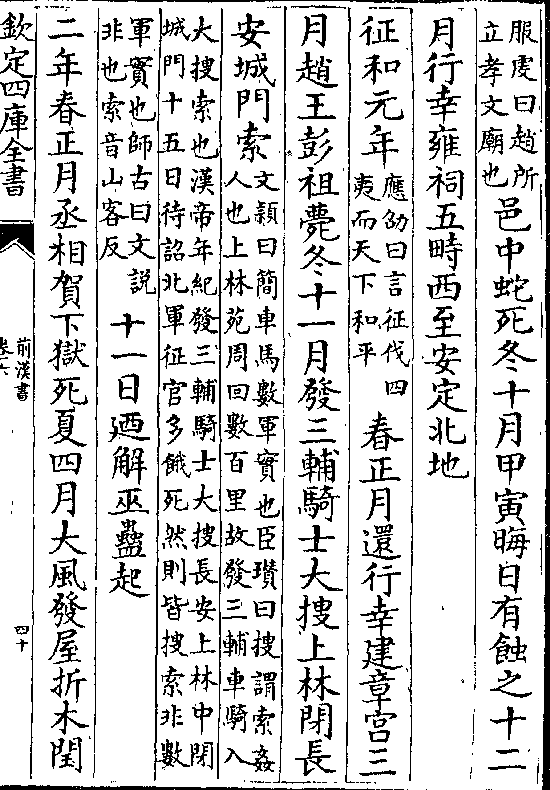 服虔曰趙所
立孝文廟也
邑中蛇死冬十月甲寅晦日有蝕之十二
月行幸雍祠五畤西至安定北地
征和元年
應劭曰言征伐四
夷而天下和平
春正月還行幸建章宫三
月趙王彭祖薨冬十一月發三輔騎士大搜上林閉長
安城門索
文頴曰簡車馬數軍實也臣瓉曰搜謂索姦
人也上林苑周回數百里故發三輔車騎入
大搜索也漢帝年紀發三輔騎士大搜長安上林中閉
城門十五日待詔北軍征官多餓死然則皆搜索非數
軍實也師古曰文説
非也索音山客反
十一日廼解巫蠱起
二年春正月丞相賀下獄死夏四月大風發屋折木閏
欽定四庫全書
前漢書
卷六
四十